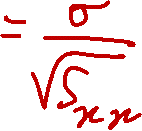 = σ / √S_{xx}